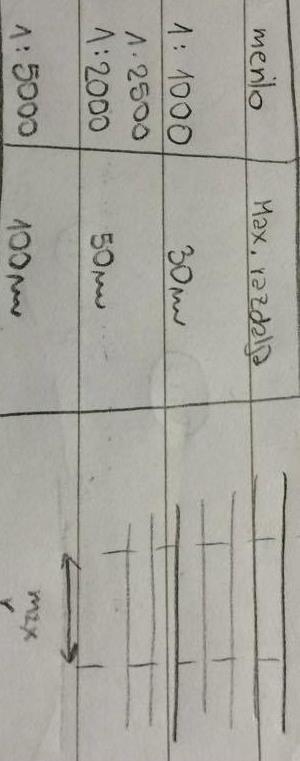 merilo Max. razdalja
1:1000 30m
1:2500
1:2000 50m
1:5000 100m
max